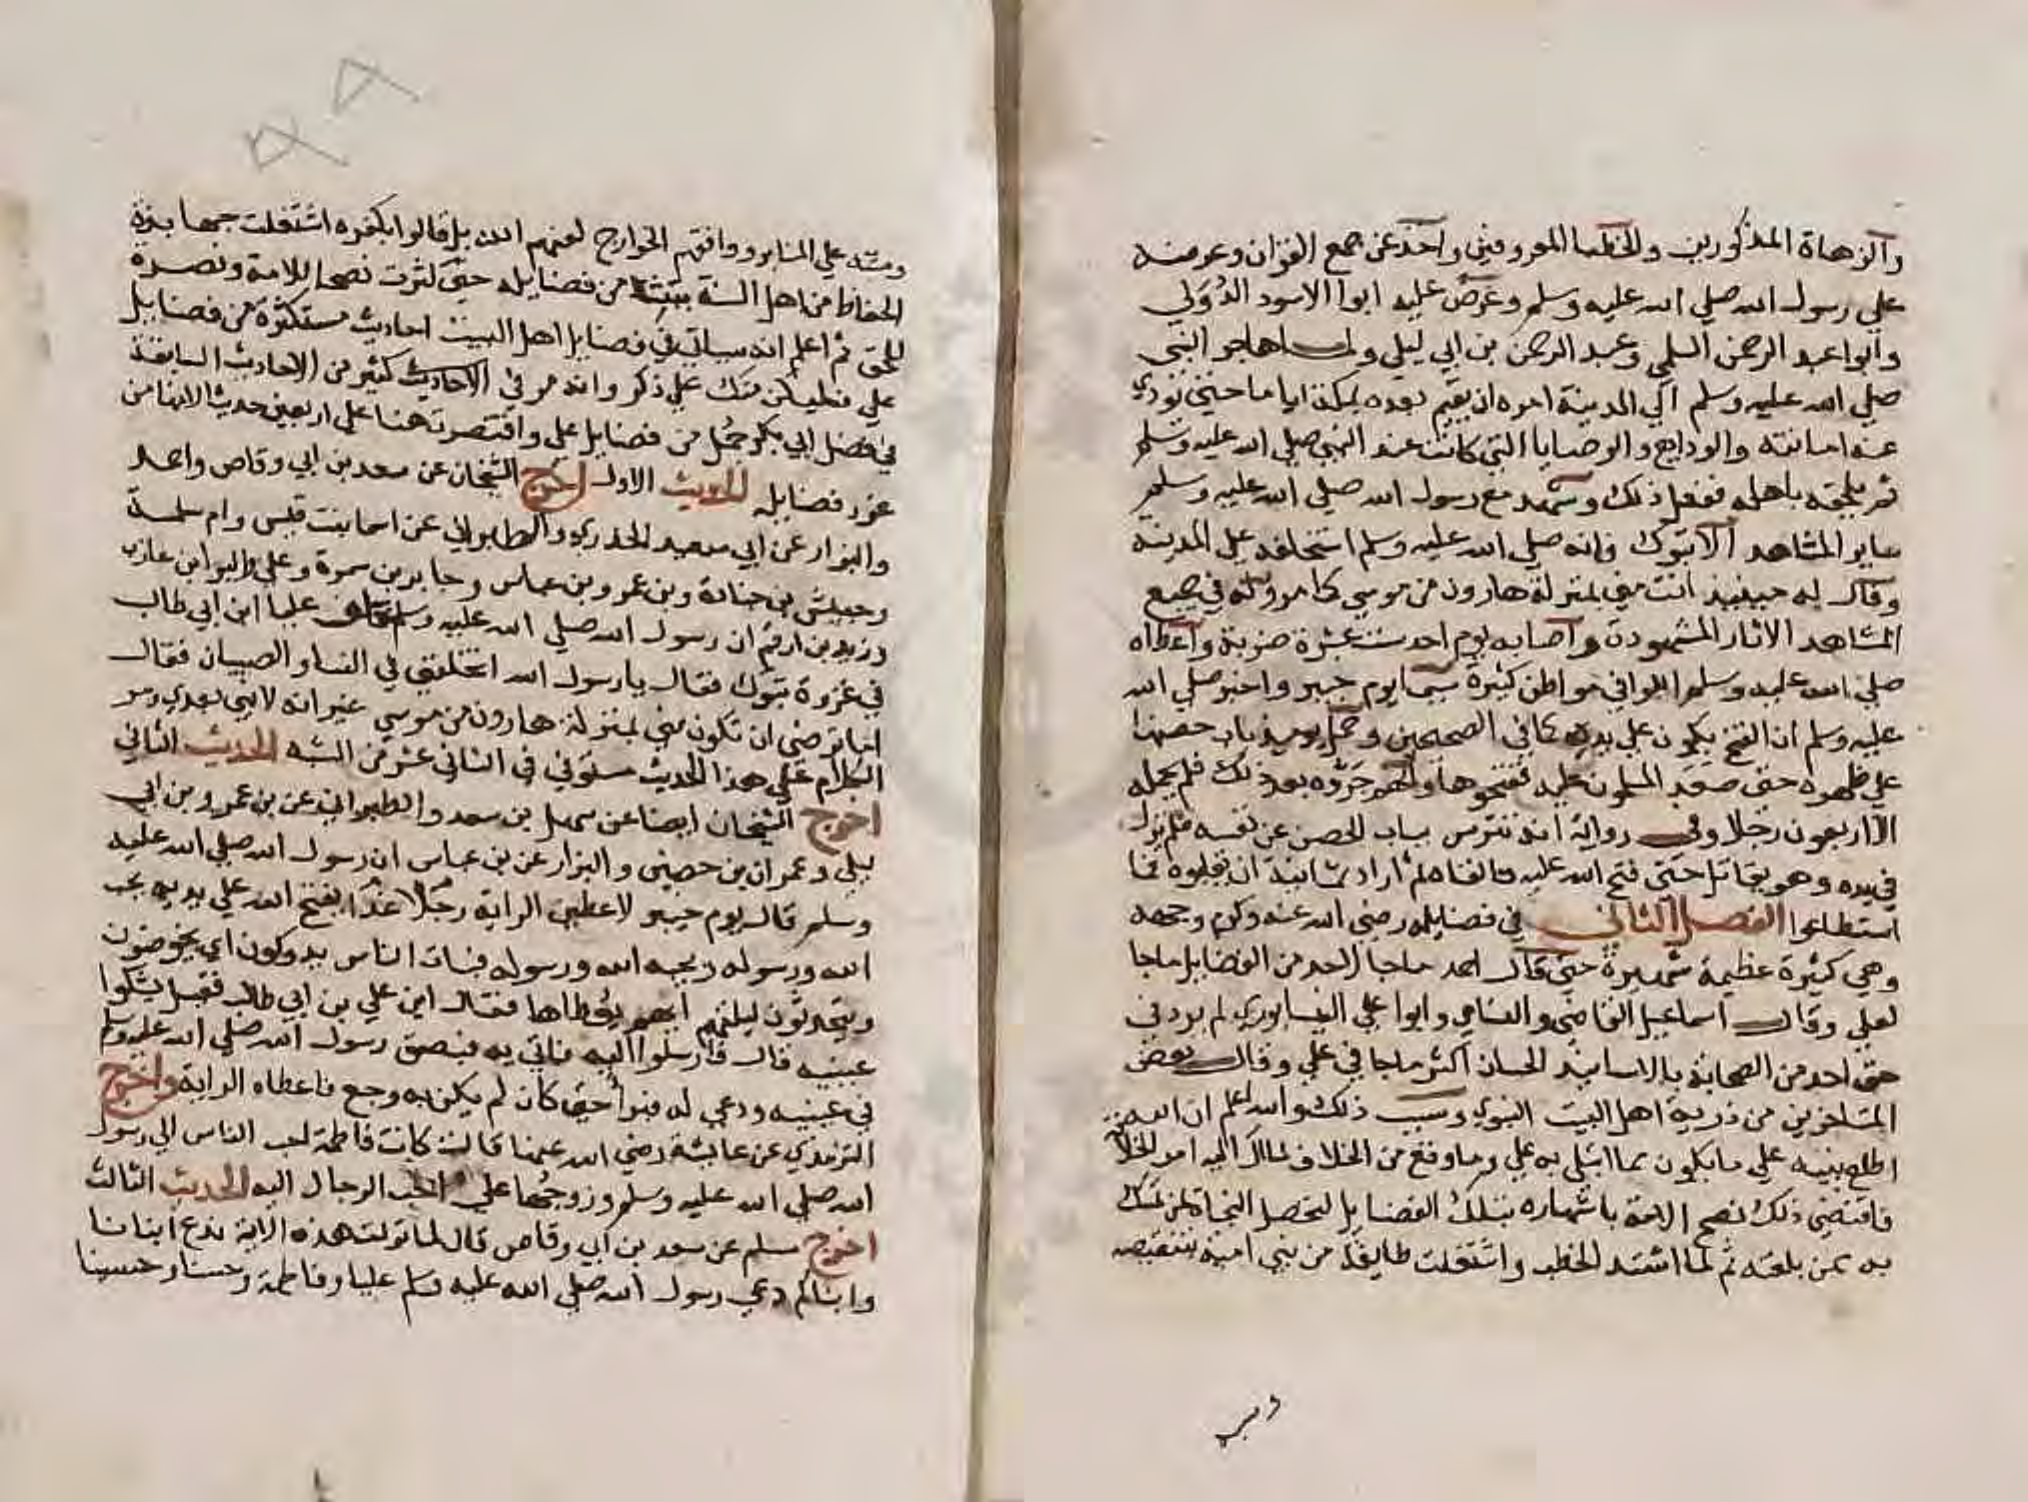 والزهاة المذكورين والخطبا المعروفين واحد عن جمع القران وعرضه
علي رسول الله صلي الله عليه وسلم وعرض عليه ابوا الاسود الدؤلي
وابوا عبد الرحمن السلمي وعبد الرحمن بن ابي ليلي ولما هاجر النبي
صلي الله عليه وسلم الي المدينة امره ان يقيم بعده بمكة اياما حتي يودي
عنه امانته والودايع والوصايا التي كانت عند النبي صلي الله عليه وسلم
ثم يلحقه باهله ففعل ذلك وشهد مع رسول الله صلي الله عليه وسلم
ساير المشاهد الا تبوك فانه صلي الله عليه وسلم استخلفه علي المدينة
وقال له حينيذ انت مني بمنزلة هارون من موسي كما مر وله في جميع
المشاهد الاثار المشهودة واصابه يوم احد ست عشرة ضربة واعطاه
صلي الله عليه وسلم اللوا في مواطن كثيرة سيما يوم خيبر واخبر صلي الله
عليه وسلم ان الفتح يكون علي يديه كما في الصحيحين وحمل يوميذ باب حصنها
علي ظهره حتي صعد المسلمون عليه ففتحوها وانهم جروه بعد ذلك فلم يحمله
الا اربعون رجلا وفي رواية انه تترس بباب الحصن عن نفسه فلم يزل
في يده وهو يقاتل حتي فتح الله عليه فالقاه ثم اراد ثمانية ان يقلبوه فما
استطاعوا الفصل الثاني في فضايله رضي الله عنه وكرم وجهه
وهي كثيرة عظيمة شهيرة حتي قال احمد ماجا لاحد من الفضايل ماجا
لعلي وقال اسماعيل القاضي والنساي وابوا علي النيسابوري لم يرد في
حق احد من الصحابة بالاسانيد الحسان اكثر ماجا في علي وقال بعض
المتاخرين من ذرية اهل البيت النبوي وسبب ذلك والله اعلم ان الله
اطلع نبيه علي ما يكون مما ابتلي به علي وما وقع من الخلاف لما ال اليه امر الخلا
فاقتضي ذلك نصح الامة باشهاره بتلك الفضايل لتحصل النجاة لمن تمسك
به ممن بلغته ثم لما اشتد الخطب واشتغلت طايفة من بني امية بتنقيصه
وسبه علي المنابر ووافقهم الخوارج لعنهم الله بل قالوا بكفره اشتغلت جهابذة
الحفاظ من اهل السنة ببث من فضايله حتي كثرت نصحا للامة ونصرة
للحق ثم اعلم انه سياتي في فضايل اهل البيت احاديث مستكثرة من فضايل
علي فليكن منك علي ذكر وانه مر في الاحاديث كثير من الاحاديث السابقة
في فضل ابي بكر جمل من فضايل علي واقتصرت هنا علي اربعين حديثا لانها من
غرر فضايله الحديث الاول اخرج الشيخان عن سعد بن ابي وقاص واحمد
والبزار عن ابي سعيد الخدري والطبراني عن اسما بنت قيس وام سلمة
وحبيش بن جنادة وبن عمر وبن عباس وجابر بن سمرة وعلي والبرا بن عازب
وزيد بن ارقم ان رسول الله صلي الله عليه وسلم خلف عليا ابن ابي طالب
في غزوة تبوك فقال يا رسول الله اتخلفني في النسا والصبيان فقال
اما ترضي ان تكون مني بمنزلة هارون من موسي غير انه لا نبي بعدي ومر
الكلام علي هذا الحديث مستوفي في الثاني عشر من الشبه الحديث الثاني
اخرج الشيخان ايضا عن سهل بن سعد والطبراني عن بن عمر وبن ابي
ليلي وعمران بن حصين والبزار عن بن عباس ان رسول الله صلي الله عليه
وسلم قال يوم خيبر لاعطين الراية رجلا غدا يفتح الله علي يديه يحب
الله ورسوله ويحبه الله ورسوله فبات الناس يدوكون اي يخوضون
ويتحدثون ليلتهم ايهم يعطاها فقال اين علي بن ابي طالب فقيل يشكوا
عينيه قال فارسلوا اليه فاتي به فبصق رسول الله صلي الله عليه وسلم
في عينيه ودعي له فبرا حتي كان لم يكن به وجع فاعطاه الراية واخرج
الترمذي عن عايشة رضي الله عنها قالت كانت فاطمة احب الناس الي رسول
الله صلي الله عليه وسلم وزوجها علي احب الرجال اليه الحديث الثالث
اخرج مسلم عن سعد بن ابي وقاص قال لما نزلت هذه الاية ندع ابنانا
وابناكم دعي رسول الله صلي الله عليه وسلم عليا وفاطمة وحسنا وحسينا